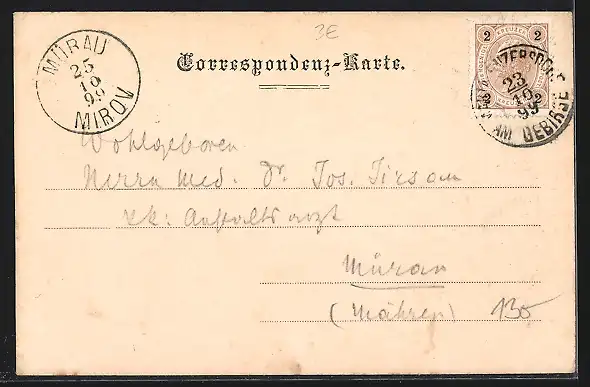 3E
MÜRAU
25
10
99
MIROV
Correspondenz-Karte.
2 KREUZER 2
23
10
99
AM GEBIRGE
Wohlgeboren
Herrn Med. Dr. Jos. Jirsam
kk: Anstaltsarzt
Mürau
(Mähren)
130